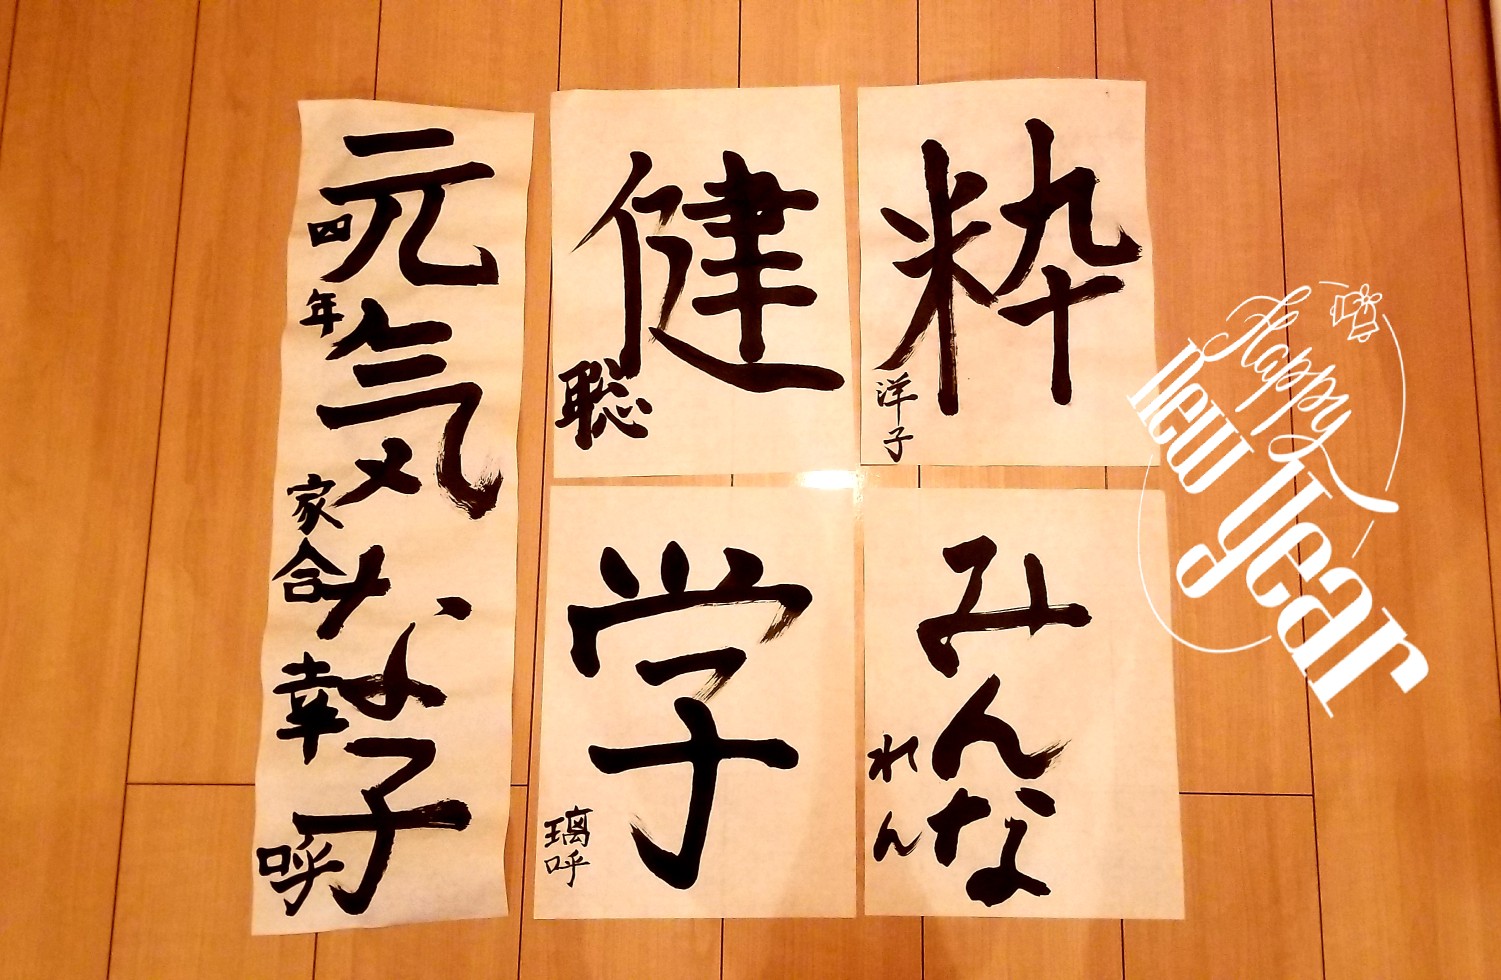 粋
洋子
健
聡
元気な子
四年 家合 幸呼
みんな
れん
学
璃呼
Happy
New Year